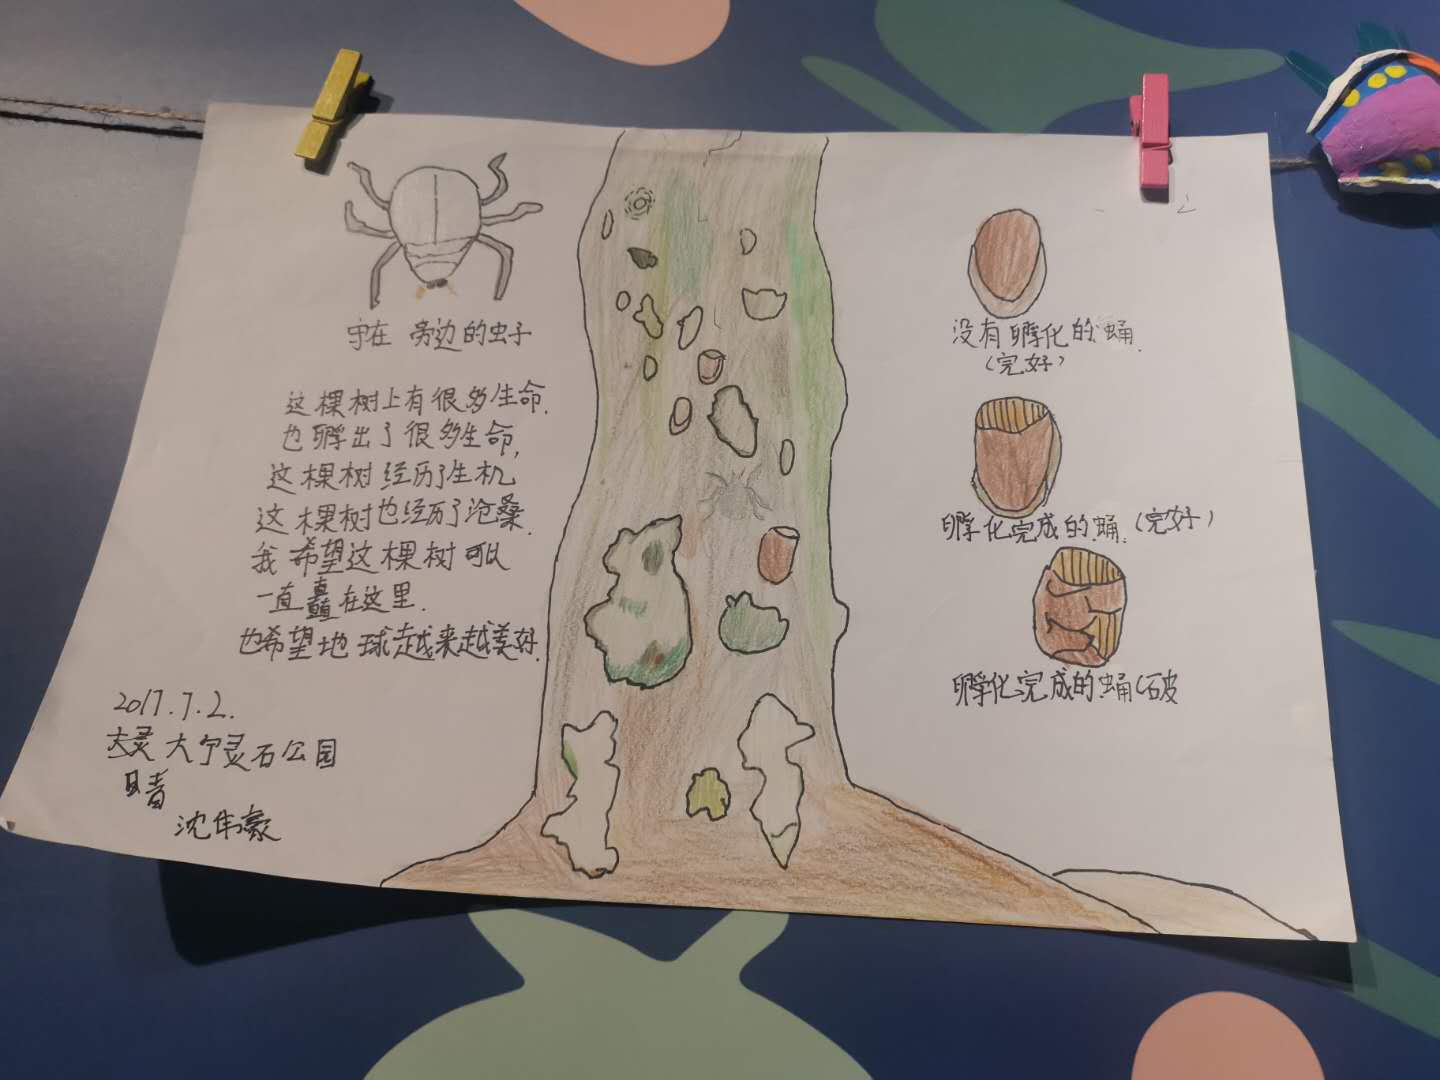 守在 旁边的虫子
这棵树上有很多生命.
也孵出了很多生命,
这棵树经历了生机
这棵树也经历了沧桑.
我希望这棵树可以
一直矗在这里.
也希望地球越来越美好.
2017.7.2.
大灵 大宁灵石公园
晴
沈伟豪
没有孵化的蛹.
(完好)
孵化完成的蛹.(完好)
孵化完成的蛹(破